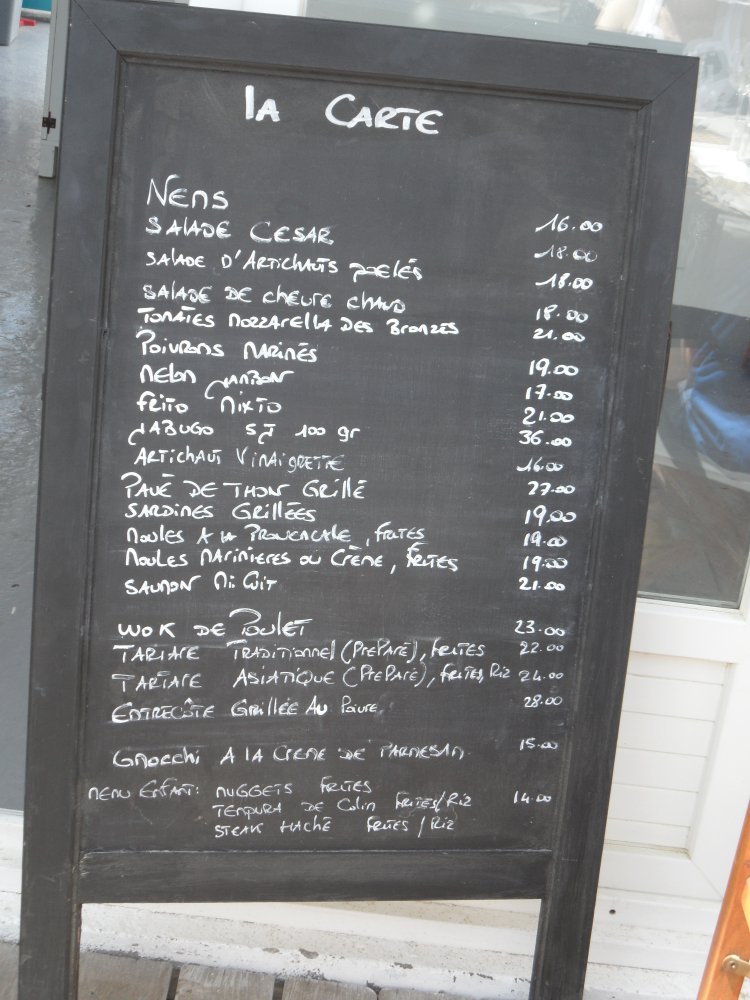 LA CARTE
NEMS 16.00
SALADE CESAR 18.00
SALADE D'ARTICHAUTS POELÉS 18.00
SALADE DE CHEVRE CHAUD 18.00
TOMATES MOZZARELLA DES BRONZÉS 21.00
POIVRONS MARINÉS 19.00
MELON JAMBON 17.00
FRITO MIXTO 21.00
JABUGO 5J 100 gr 36.00
ARTICHAUT VINAIGRETTE 16.00
PAVÉ DE THON GRILLÉ 27.00
SARDINES GRILLÉES 19.00
MOULES A LA PROVENCALE, FRITES 19.00
MOULES MARINIERES OU CRÈME, FRITES 19.00
SAUMON MI CUIT 21.00
WOK DE POULET 23.00
TARTARE TRADITIONNEL (PREPARÉ), FRITES 22.00
TARTARE ASIATIQUE (PREPARÉ), FRITES, RIZ 24.00
ENTRECÔTE GRILLÉE AU POIVRE 28.00
GNOCCHI A LA CREME DE PARMESAN 15.00
MENU ENFANT: NUGGETS FRITES
TEMPURA DE COLIN FRITES/RIZ 14.00
STEAK HACHÉ FRITES / RIZ